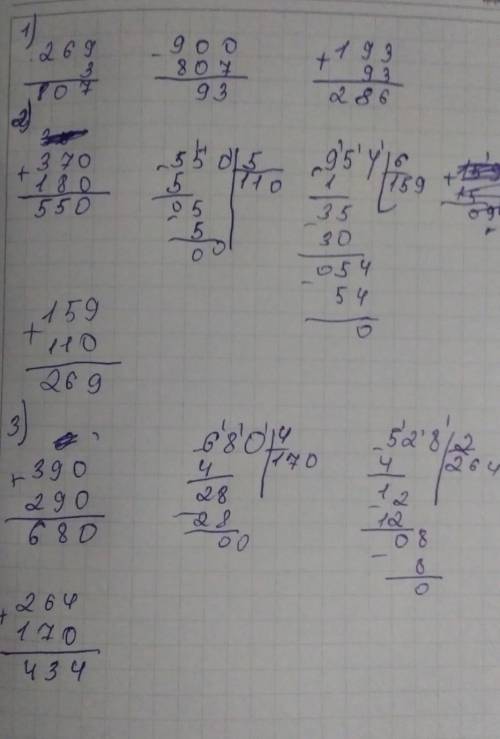 1)
269
3
807
- 900
807
93
+ 193
93
286
2)
+ 370
180
550
- 550 | 5
5 110
- 05
5
00
- 954 | 6
1 159
- 35
30
- 054
54
0
+ 159
15
09
+ 159
110
269
3)
+ 390
290
680
- 680 | 4
4 170
- 28
28
00
- 528 | 2
4 264
- 12
12
- 08
8
0
+ 264
170
434